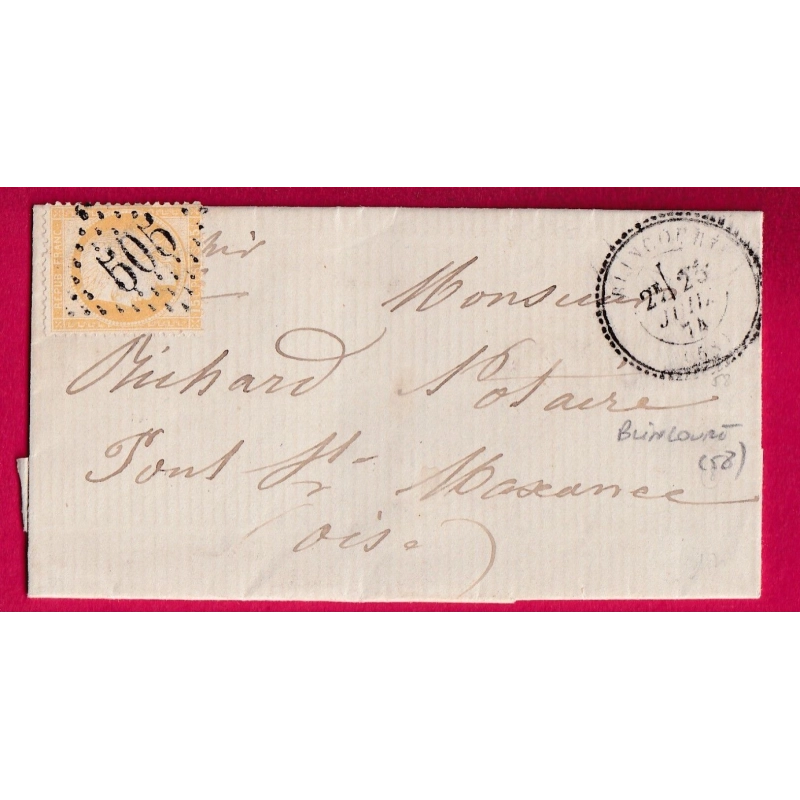 505
BLINCOURT
2E 23
JUIL.
74
(58)
58
Monsieur
Richard Notaire
Pont Ste Maxance
(oise)
BLINCOURT
(58)